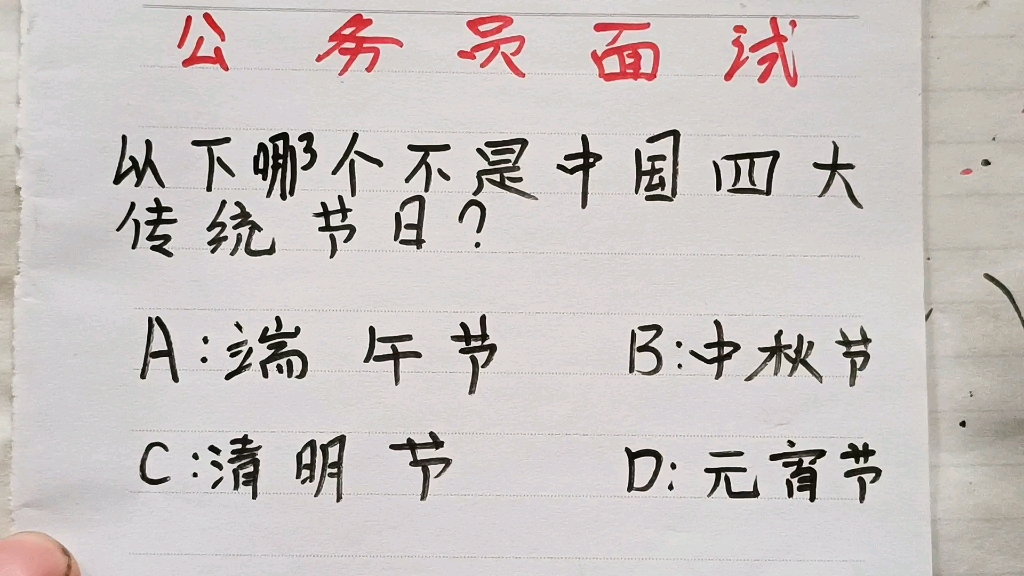 公务员面试
以下哪个不是中国四大
传统节日?
A:端午节 B:中秋节
C:清明节 D:元宵节